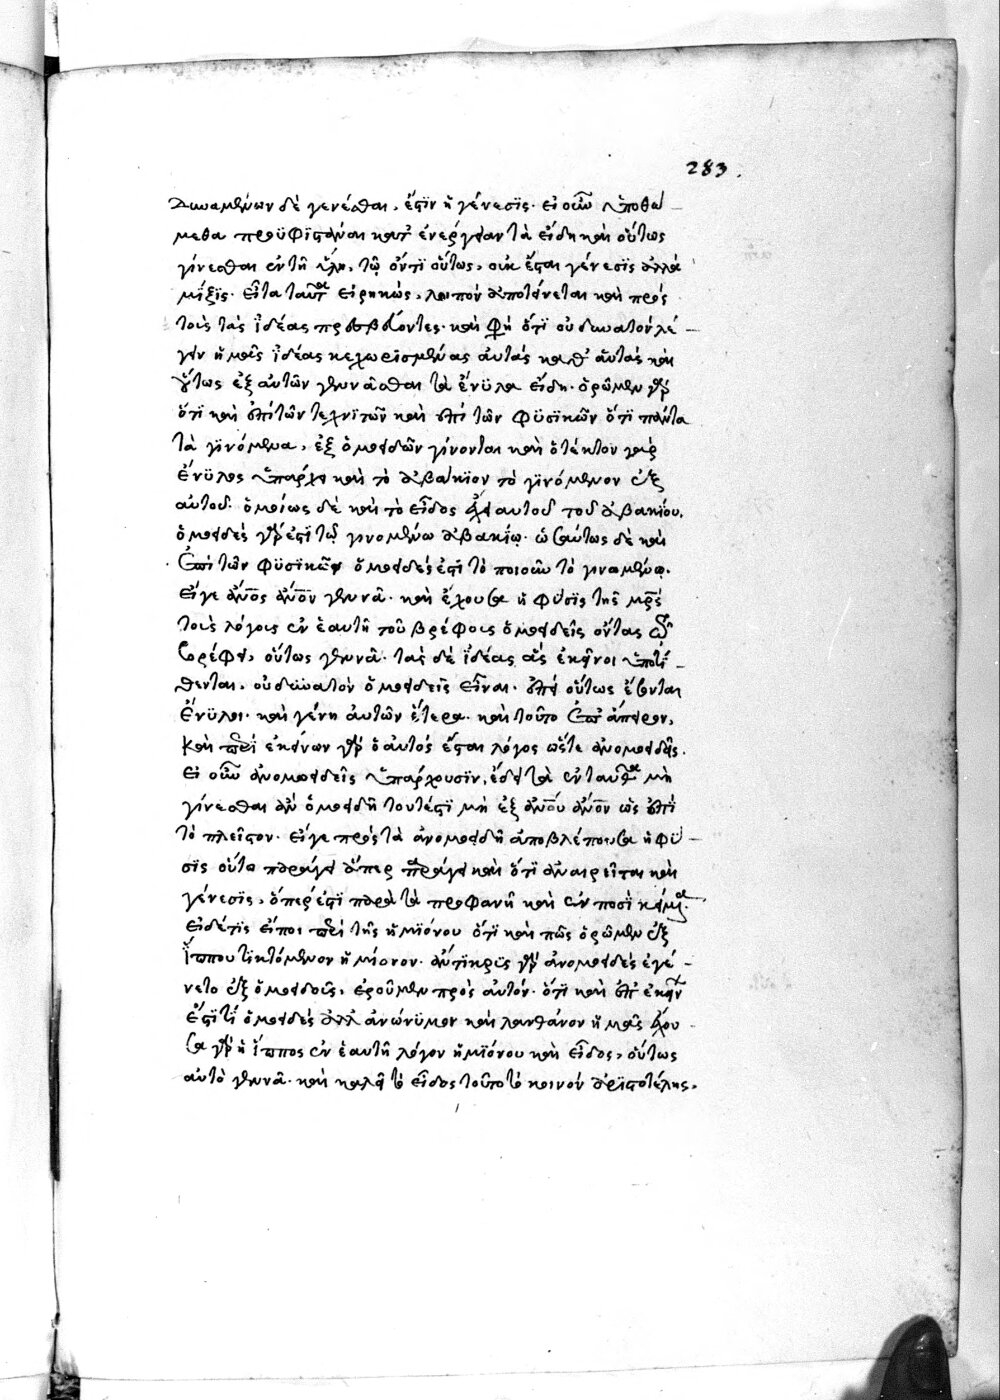 283.
δυναμένων δὲ γενέσθαι, ἔστιν ἡ γένεσις. εἰ οὖν ὑποθώ
μεθα προϋφιστάναι κατ' ἐνέργειαν τὰ εἴδη καὶ οὕτως
γίνεσθαι ἐν τῇ ὕλῃ, τῷ ὄντι οὕτως, οὐκ ἔσται γένεσις ἀλλὰ
μῖξις. εἶτα ταῦτα εἰρηκώς, λοιπὸν ἀποτείνεται καὶ πρὸς
τοὺς τὰς ἰδέας πρεσβεύοντες. καὶ φησὶ ὅτι οὐ δυνατὸν λέ
γειν ἡμᾶς ἰδέας κεχωρισμένας αὐτὰς καθ' αὑτὰς καὶ
οὕτως ἐξ αὐτῶν γεννᾶσθαι τὰ ἔνυλα εἴδη. ὁρῶμεν γὰρ
ὅτι καὶ ἐπὶ τῶν τεχνιτῶν καὶ ἐπὶ τῶν φυσικῶν ὅτι πάντα
τὰ γινόμενα, ἐξ ὁμοειδῶν γίνονται καὶ ὁ τέκτων γὰρ
ἔνυλος ὑπάρχει καὶ τὸ ἀβάκιον τὸ γινόμενον ἐξ
αὐτοῦ. ὁμοίως δὲ καὶ τὸ εἶδος αὐτοῦ τοῦ ἀβακίου,
ὁμοειδές γάρ ἐστι τῷ γινομένῳ ἀβακίῳ. ὡσαύτως δὲ καὶ
ἐπὶ τῶν φυσικῶν ὁμοειδές ἐστι τὸ ποιοῦν τὸ γιναμένῳ.
εἴγε ἄνος ἄνον γεννᾷ. καὶ ἔχουσα ἡ φύσις τῆς μρς
τοὺς λόγους ἐν ἑαυτῇ τοῦ βρέφους ὁμοειδεῖς ὄντας τῷ
βρέφει, οὕτως γεννᾷ. τὰς δὲ ἰδέας ἃς ἐκεῖνοι ὑποτί
θενται, οὐ δυνατὸν ὁμοειδεῖς εἶναι. ἐπεὶ οὕτως ἔσονται
ἔνυλοι. καὶ γένη αὐτῶν ἕτερα. καὶ τοῦτο ἐπ' ἄπειρον,
καὶ περὶ ἐκείνων γὰρ ὁ αὐτὸς ἔσται λόγος ὥστε ἀνομοειδεῖς.
εἰ οὖν ἀνομοειδεῖς ὑπάρχουσιν, ἔδει τὰ ἐνταῦθα μὴ
γίνεσθαι ἂν ὁμοειδῆ τουτέστι μὴ ἐξ ἄνου ἄνον ὡς ἐπὶ
τὸ πλεῖστον. εἴγε πρὸς τὰ ἀνομοειδῆ ἀποβλέπουσα ἡ φύ
σις οὕτω παράγει ἅπερ παράγει καὶ ὅτι ἀναιρεῖται καὶ
γένεσις, ὅπερ ἐστὶ παρὰ τὰ προφανῆ καὶ ἐν ποσὶ κείμενα.
εἰ δέ τις εἴποι περὶ τῆς ἡμιόνου ὅτι καὶ πῶς ὁρῶμεν ἐξ
ἵππου τικτόμενον ἡμίονον. ἄντικρυς γὰρ ἀνομοειδές ἐγέ
νετο ἐξ ὁμοειδοῦς, ἐροῦμεν πρὸς αὐτόν. ὅτι καὶ ἐπ' ἐκείνων
ἔστι τί ὁμοειδὲς ἀλλ' ἀνώνυμον καὶ λανθάνον ἡμᾶς ἔχου
σα γὰρ ἡ ἵππος ἐν ἑαυτῇ λόγον ἡμιόνου καὶ εἶδος, οὕτως
αὐτὸ γεννᾷ. καὶ καλεῖ τὸ εἶδος τοῦτο τὸ κοινὸν ἀριστοτέλης.